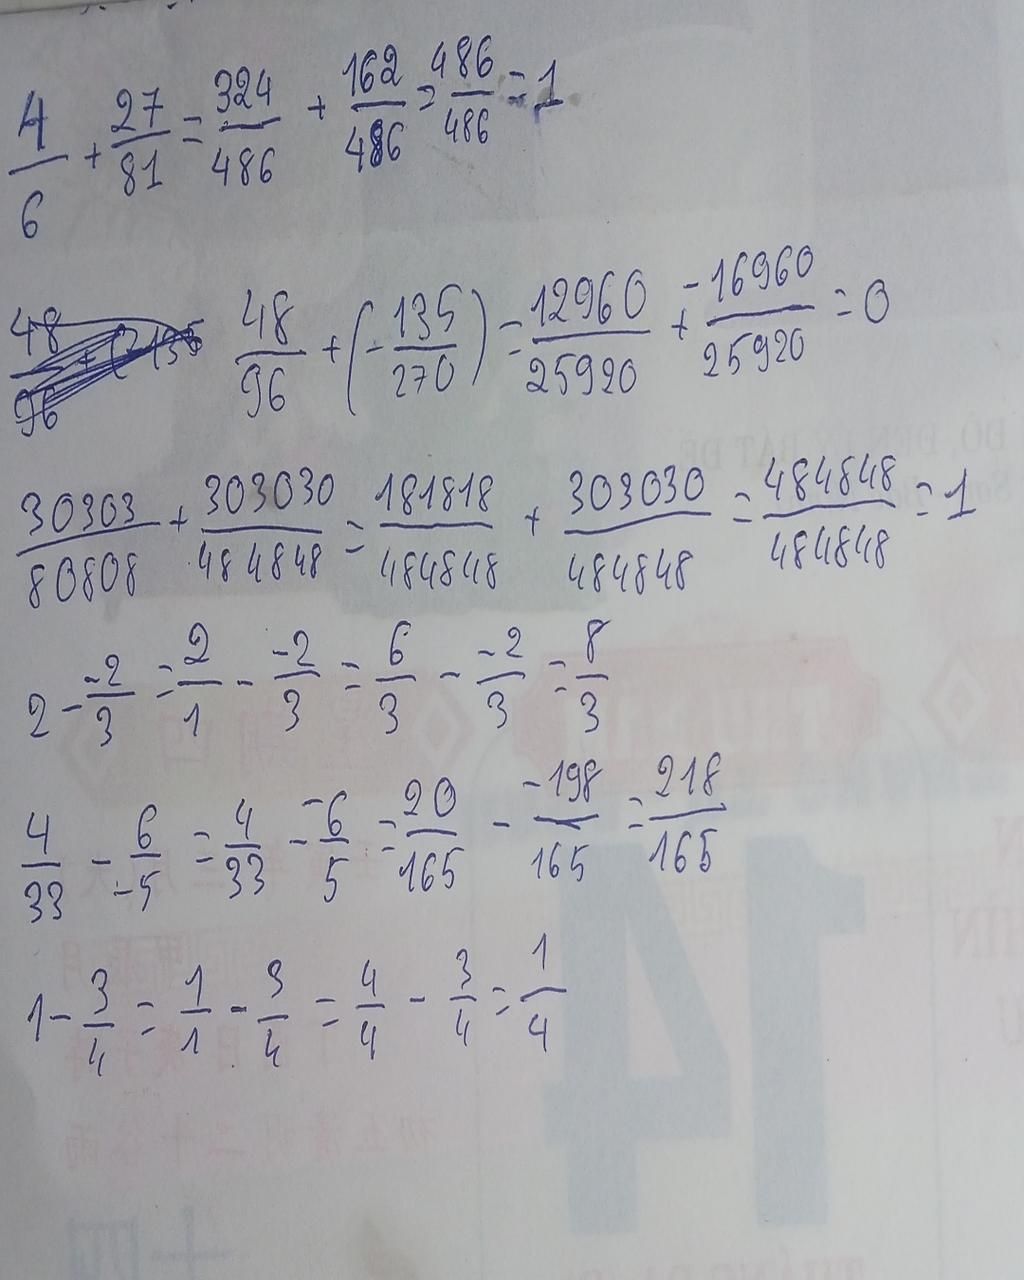 4/6 + 27/81 = 324/486 + 162/486 = 486/486 = 1
48/96 + (-135/270) = 12960/25920 + -16960/25920 = 0
30303/80808 + 303030/484848 = 181818/484848 + 303030/484848 = 484848/484848 = 1
2 - -2/3 = 2/1 - -2/3 = 6/3 - -2/3 = 8/3
4/33 - 6/-5 = 4/33 - -6/5 = 20/165 - -198/165 = 218/165
1 - 3/4 = 1/1 - 3/4 = 4/4 - 3/4 = 1/4